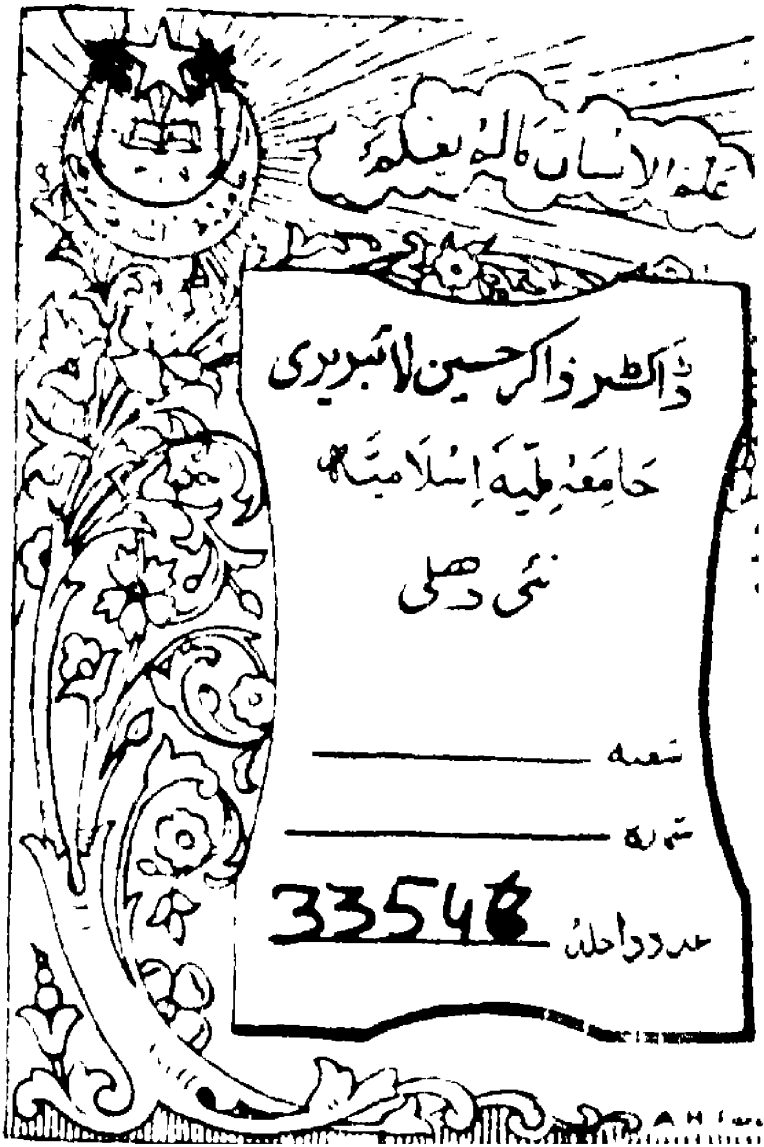 علم الانسان مالم يعلم
ڈاکٹر ذاکر حسین لائبریری
جامعہ ملیہ اسلامیہ
نئی دهلی
شعبه
شماره
عدد داخلہ 3354
A H